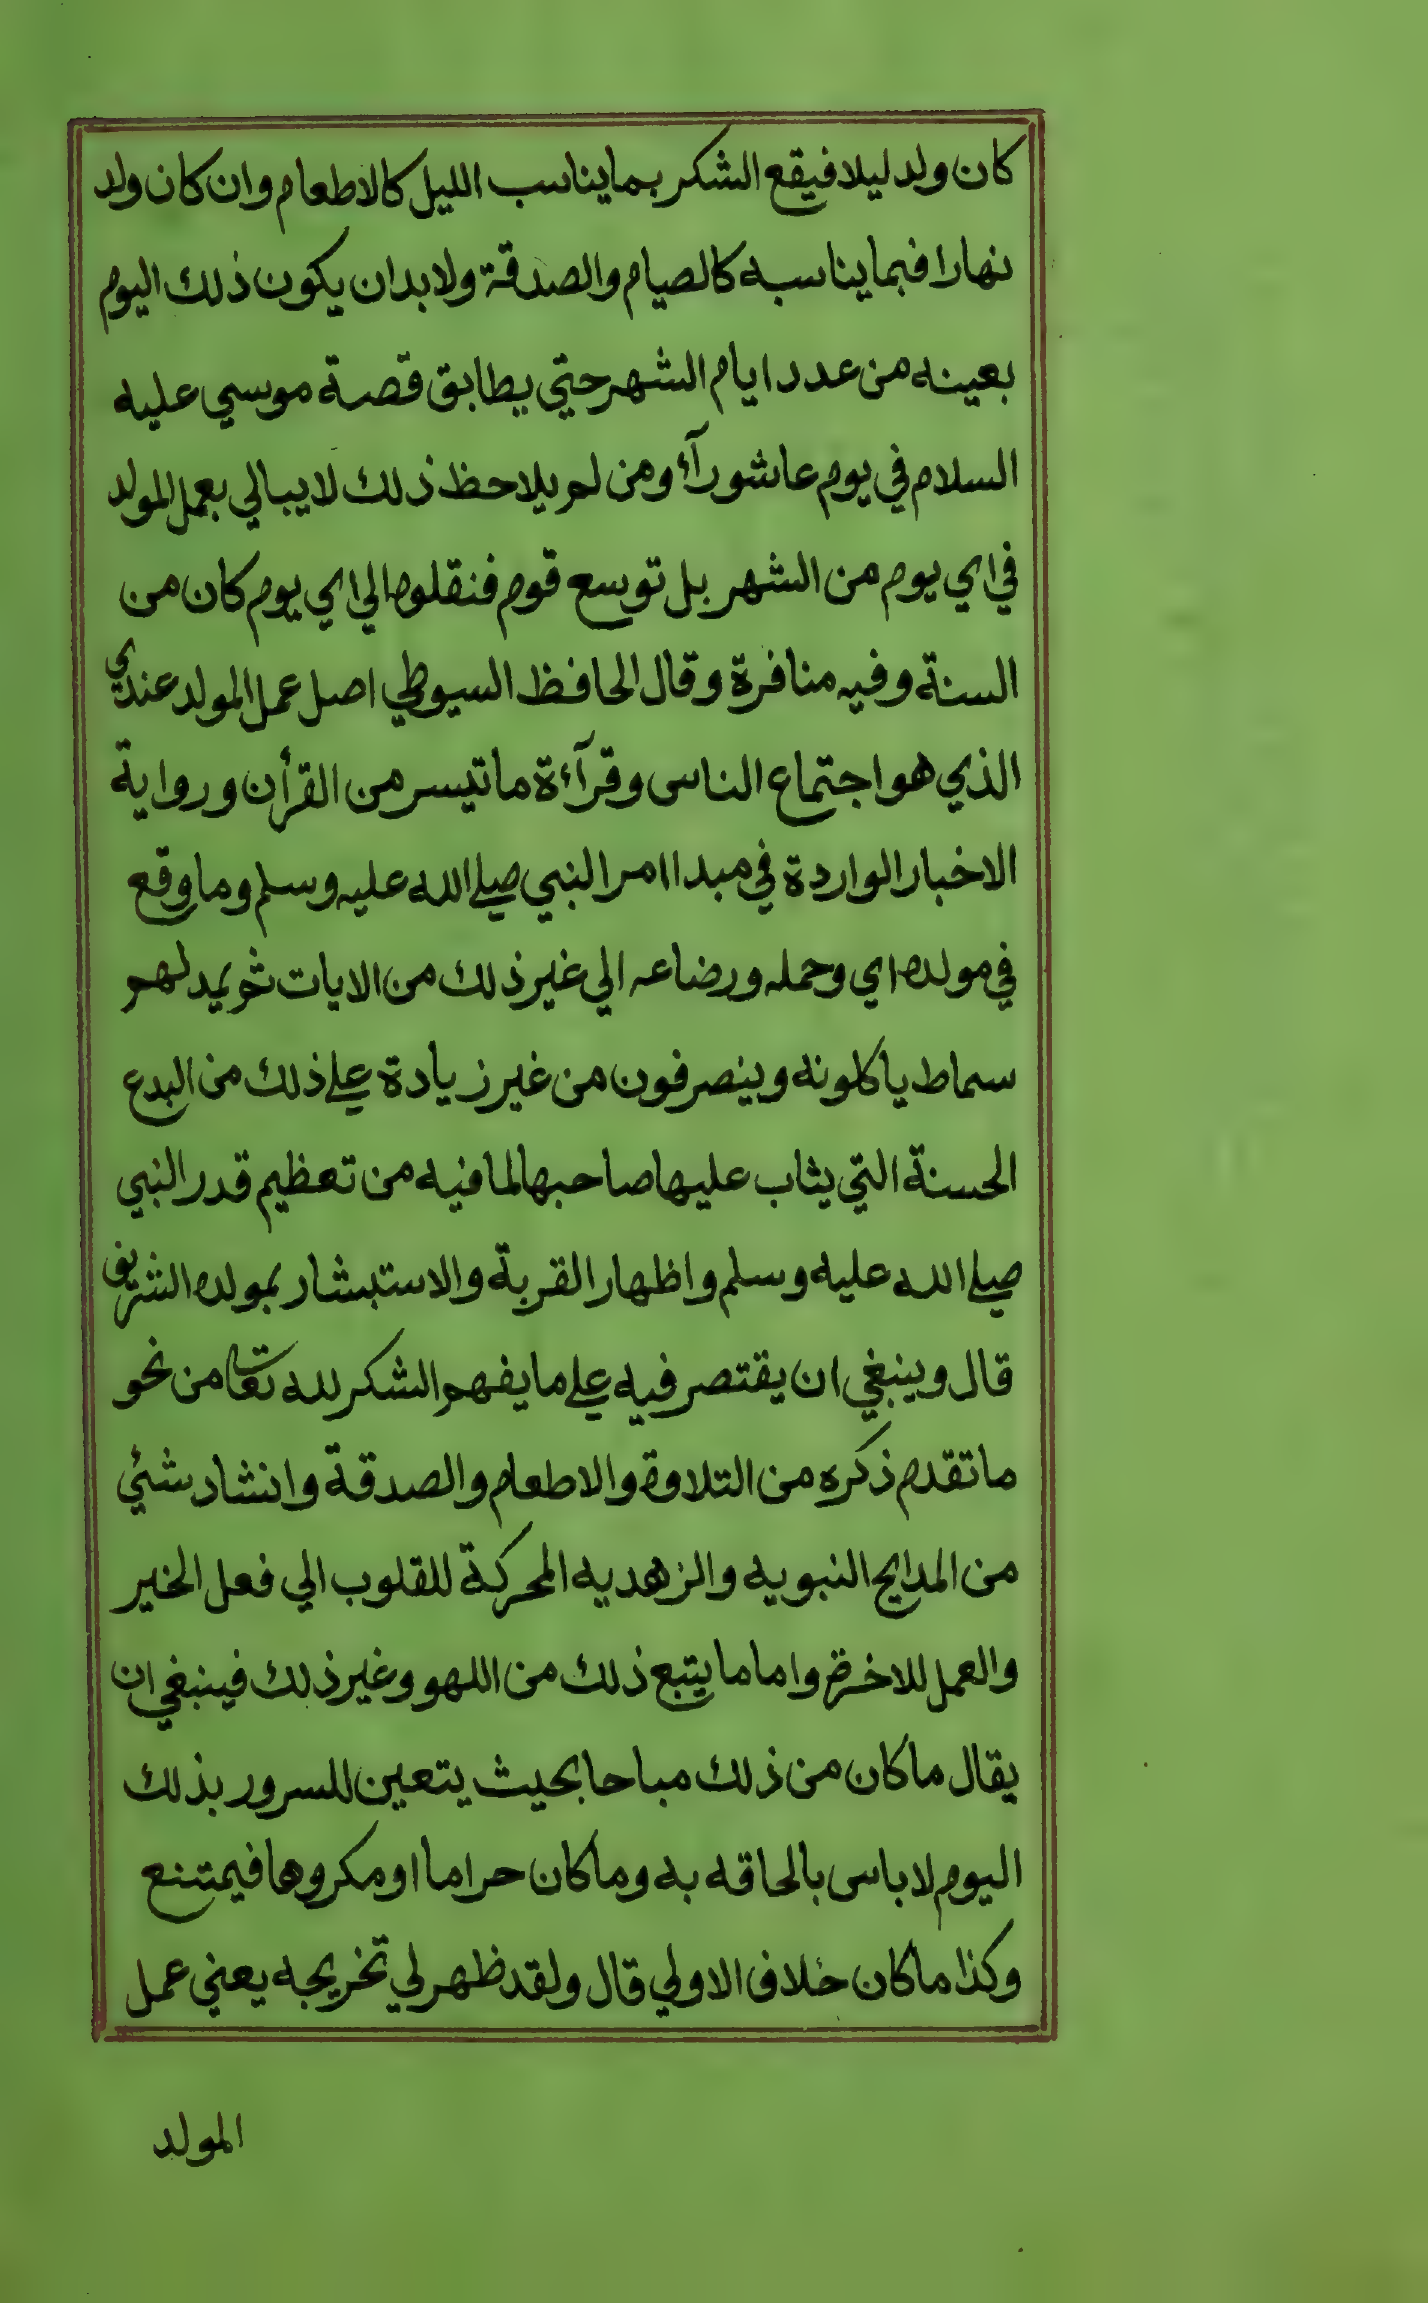 كان ولد ليلا فيقع الشكر بما يناسب الليل كالاطعام وان كان ولد
نهارا فبما يناسبه كالصيام والصدقة ولا بد ان يكون ذلك اليوم
بعينه من عدد ايام الشهر حتي يطابق قصة موسي عليه
السلام في يوم عاشورآء ومن لم يلاحظ ذلك لا يبالي بعمل المولد
في اي يوم من الشهر بل توسع قوم فنقلوه الي اي يوم كان من
السنة وفيه منافرة وقال الحافظ السيوطي اصل عمل المولد عندي
الذي هو اجتماع الناس وقرآءة ما تيسر من القرأن ورواية
الاخبار الواردة في مبدا امر النبي صلي الله عليه وسلم وما وقع
في مولده اي وحمله ورضاعه الي غير ذلك من الايات ثم يمد لهم
سماط ياكلونه وينصرفون من غير زيادة علي ذلك من البدع
الحسنة التي يثاب عليها صاحبها لما فيه من تعظيم قدر النبي
صلي الله عليه وسلم واظهار القربة والاستبشار بمولده الشريف
قال وينبغي ان يقتصر فيه علي ما يفهم الشكر لله تعا من نحو
ما تقدم ذكره من التلاوة والاطعام والصدقة وانشاد شئي
من المدايح النبويه والزهديه المحركة للقلوب الي فعل الخير
والعمل للاخرة واما ما يتبع ذلك من اللهو وغير ذلك فينبغي ان
يقال ما كان من ذلك مباحا بحيث يتعين للسرور بذلك
اليوم لا باس بالحاقه به وما كان حراما او مكروها فيمتنع
وكذا ما كان خلاف الاولي قال ولقد ظهر لي تخريجه يعني عمل
المولد